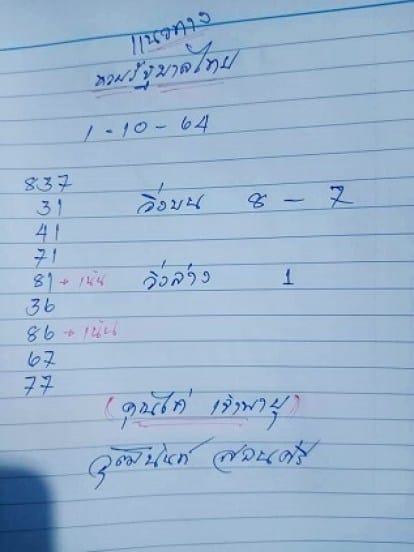 แนวทาง
หวยรัฐบาลไทย
1-10-64
837
31 วิ่งบน 8 - 7
41
71
81 → เน้น วิ่งล่าง 1
36
86 → เน้น
67
77
(คุณไก่ เจ้าพายุ)
วุฒินันท์